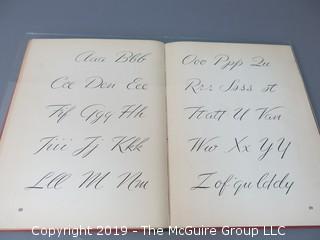 Aaa Bbb
Ccc Den Eee
Fff Ggg Hh
Jiii Jj Kkk
Lll M Nnn
Ooo Ppp Qu
Rrr Ssss st
Ttatt U Van
Ww Xx YY
Copyright 2019 - The McGuire Group.com